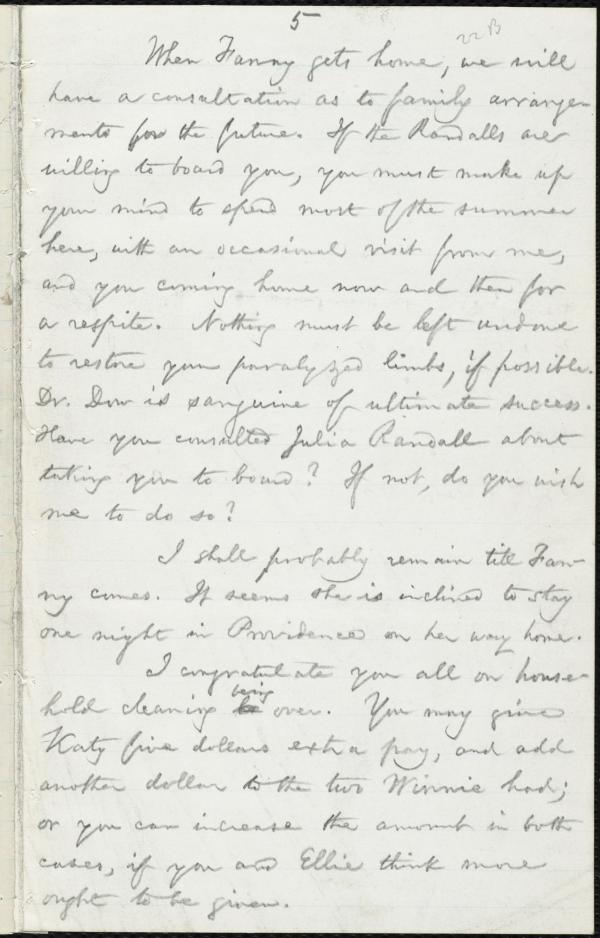 5
22 B
When Fanny gets home, we will
have a consultation as to family arrange-
ments for the future. If the Randalls are
willing to board you, you must make up
your mind to spend most of the summer
here, with an occasional visit from me,
and you coming home now and then for
a respite. Nothing must be left undone
to restore your paralyzed limbs, if possible.
Dr. Dow is sanguine of ultimate success.
Have you consulted Julia Randall about
taking you to board? If not, do you wish
me to do so?
I shall probably remain till Fan-
ny comes. It seems she is inclined to stay
one night in Providence on her way home.
I congratulate you all on house-
hold cleaning being over. You may give
Katy five dollars extra pay, and add
another dollar to the two Winnie had;
or you can increase the amount in both
cases, if you and Ellie think more
ought to be given.